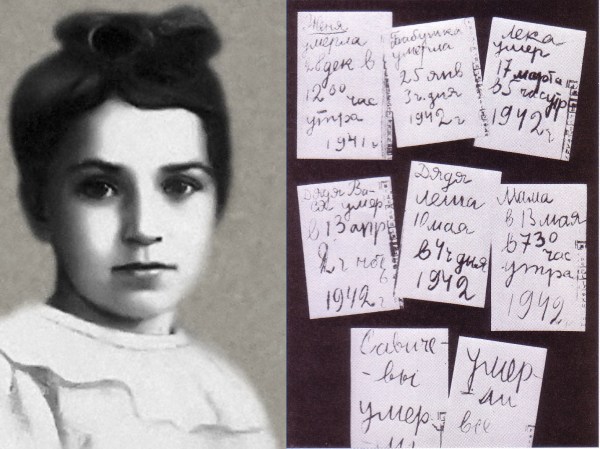 Женя
умерла
28 дек в
12 00
час
утра
1941 г
Бабушка
умерла
25 янв
3 ч. дня
1942 г
Лека
умер
17 марта
в 5 час утр
1942 г
Дядя Ва-
ся умер
в 13 апр
2 ч
1942 г
Дядя
Леша
10 мая
в 4 ч дня
1942
Мама
в 13 мая
в 7 30
час
утра
1942 г
Савиче-
-вы
умер-
ли
умер-
-ли
все